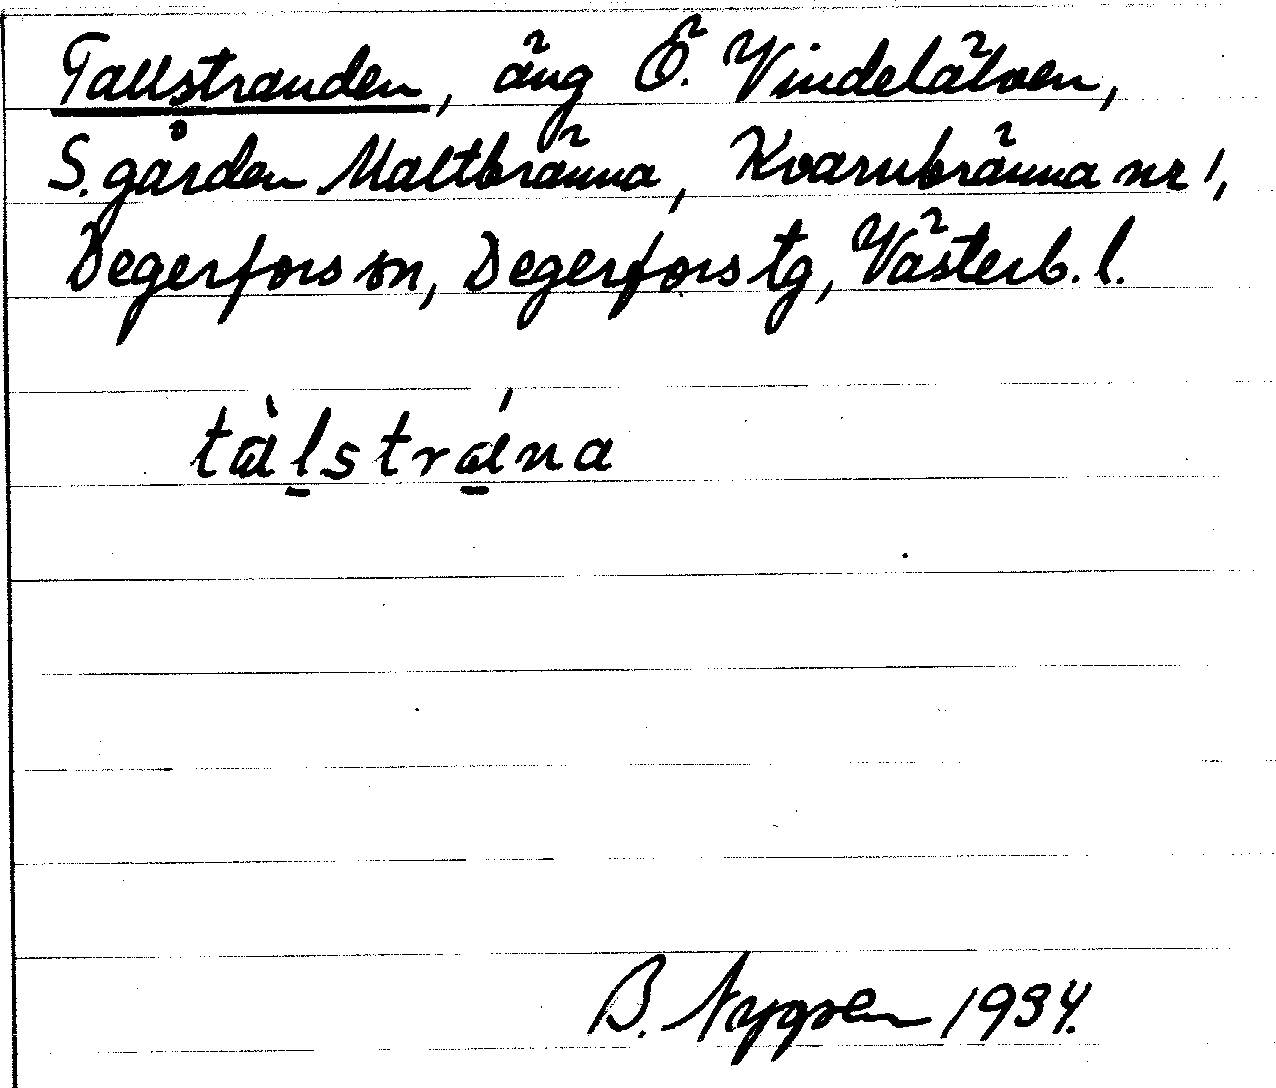 Tallstranden, äng Ö. Vindelälven,
S. gården Maltbränna, Kvarnbränna nr 1,
Degerfors sn, Degerfors tg, Västerb. l.
tàl̠strá̠na
B. Nygren 1934.